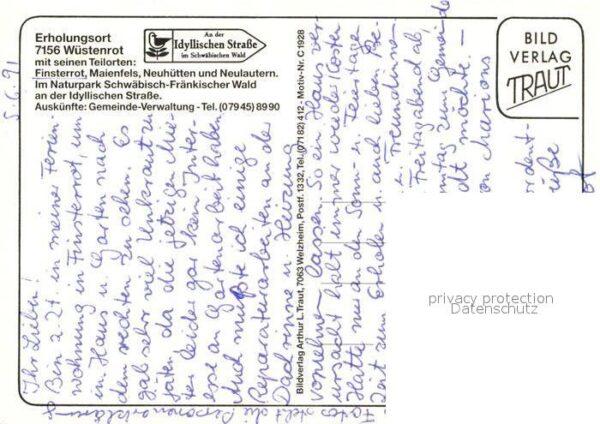 Erholungsort
7156 Wüstenrot
mit seinen Teilorten:
Finsterrot, Maienfels, Neuhütten und Neulautern.
Im Naturpark Schwäbisch-Fränkischer Wald
an der Idyllischen Straße.
Auskünfte: Gemeinde-Verwaltung - Tel. (07945) 8990
An der
Idyllischen Straße
im Schwäbischen Wald
BILD
VERLAG
TRAUT
Bildverlag Arthur L. Traut, 7063 Welzheim, Postf. 1332, Tel. (07182) 412 - Motiv-Nr. C 1928
5.6.91
Ihr Lieben!
Bin z. Zt. in meiner Ferien-
wohnung in Finsterrot, um
in Haus u. Garten nach
dem rechten zu sehen. Es
gab sehr viel Unkraut zu
jäten, da die jetzigen Mie-
ter leider gar kein Inter-
esse an Gartenarbeit haben.
Auch mußte ich einige
Reparaturarbeiten an der
Dachrinne u. Heizung
vornehmen lassen. So ein Haus ver-
ursacht halt immer wieder Kosten
Hatte nur an den Sonn- u. Feiertagen
Zeit zum Erholen und lieben Be-
Freundinnen
Freitagabend ab
zum Gemeinde
möchte. –
Marions
privacy protection
Datenschutz